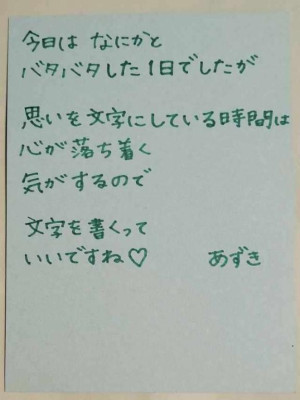 今日は なにかと
バタバタした1日でしたが
思いを文字にしている時間は
心が落ち着く
気がするので
文字を書くって
いいですね♡ あずき